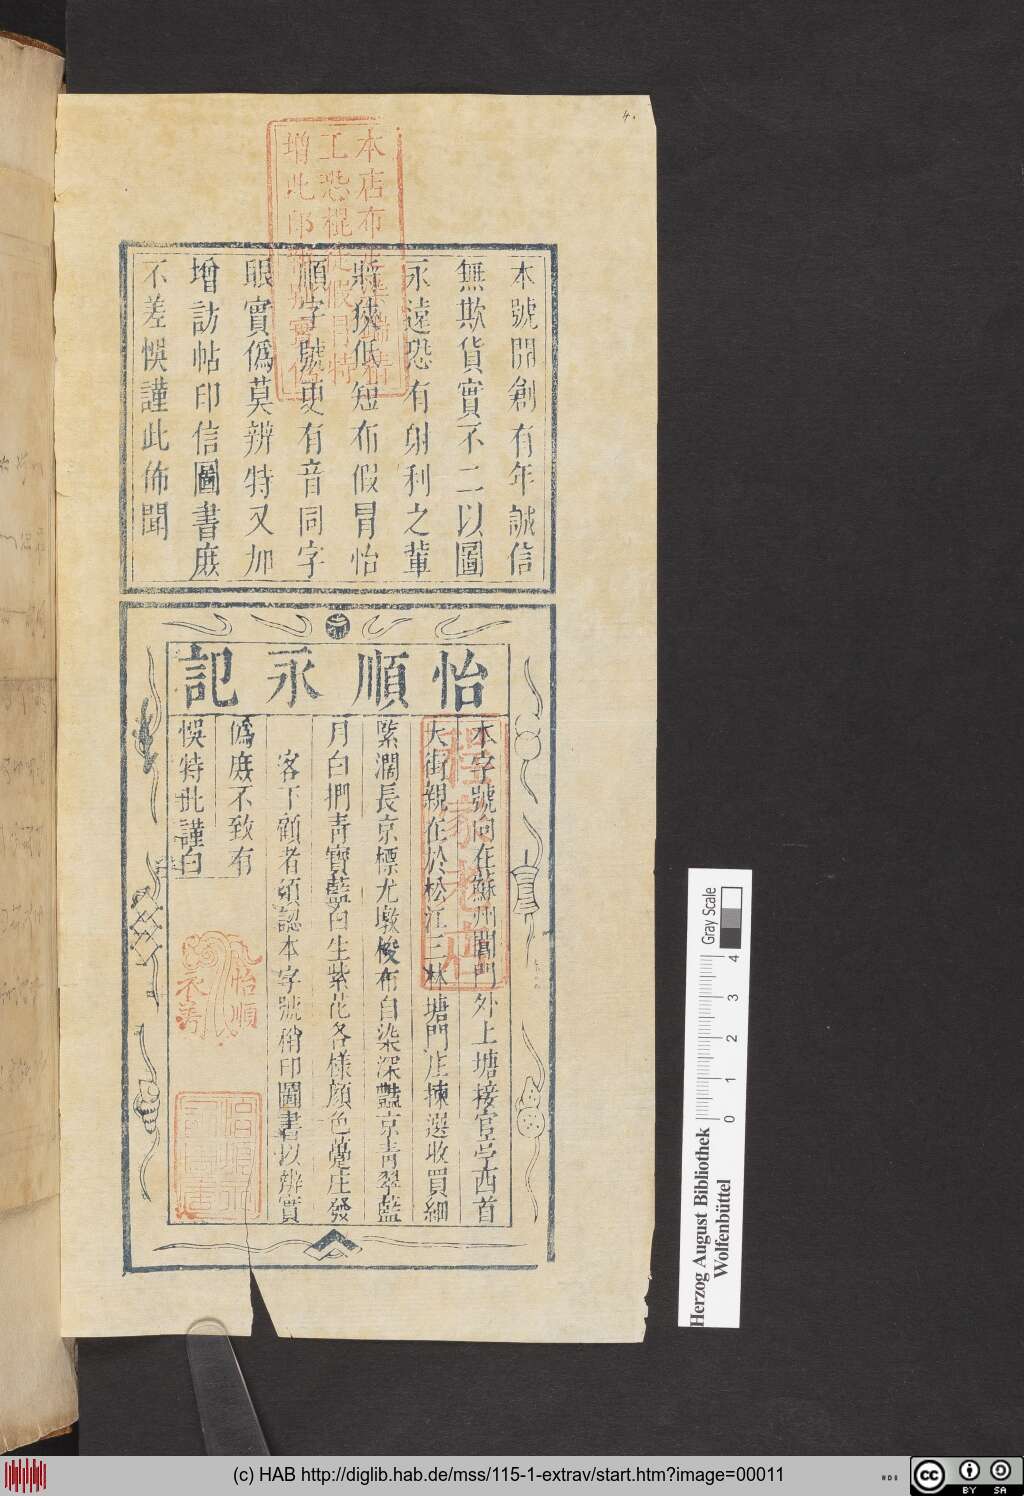 4.
本號開創有年誠信
無欺貨實不二以圖
永遠恐有射利之輩
將狹低短布假冒怡
順字號更有音同字
眼實僞莫辨特又加
增訪帖印信圖書庻
不差悞謹此佈聞
本店布
工恐棍徒假冒特
增此
怡順永記
本字號向在蘇州閶門外上塘接官亭西首
大街親在於松江三林塘門庄揀選收買細
緊濶長京標尤墩梭布自染深豔京青翠藍
月白捫青寶藍白生紫花各樣顏色躉庄發
客下顧者須認本字號稍印圖書以辨實
僞庻不致有
悞特此謹白
怡順
Herzog August Bibliothek
Wolfenbüttel
Gray Scale
0 1 2 3 4
(c) HAB http://diglib.hab.de/mss/115-1-extrav/start.htm?image=00011
cc BY SA